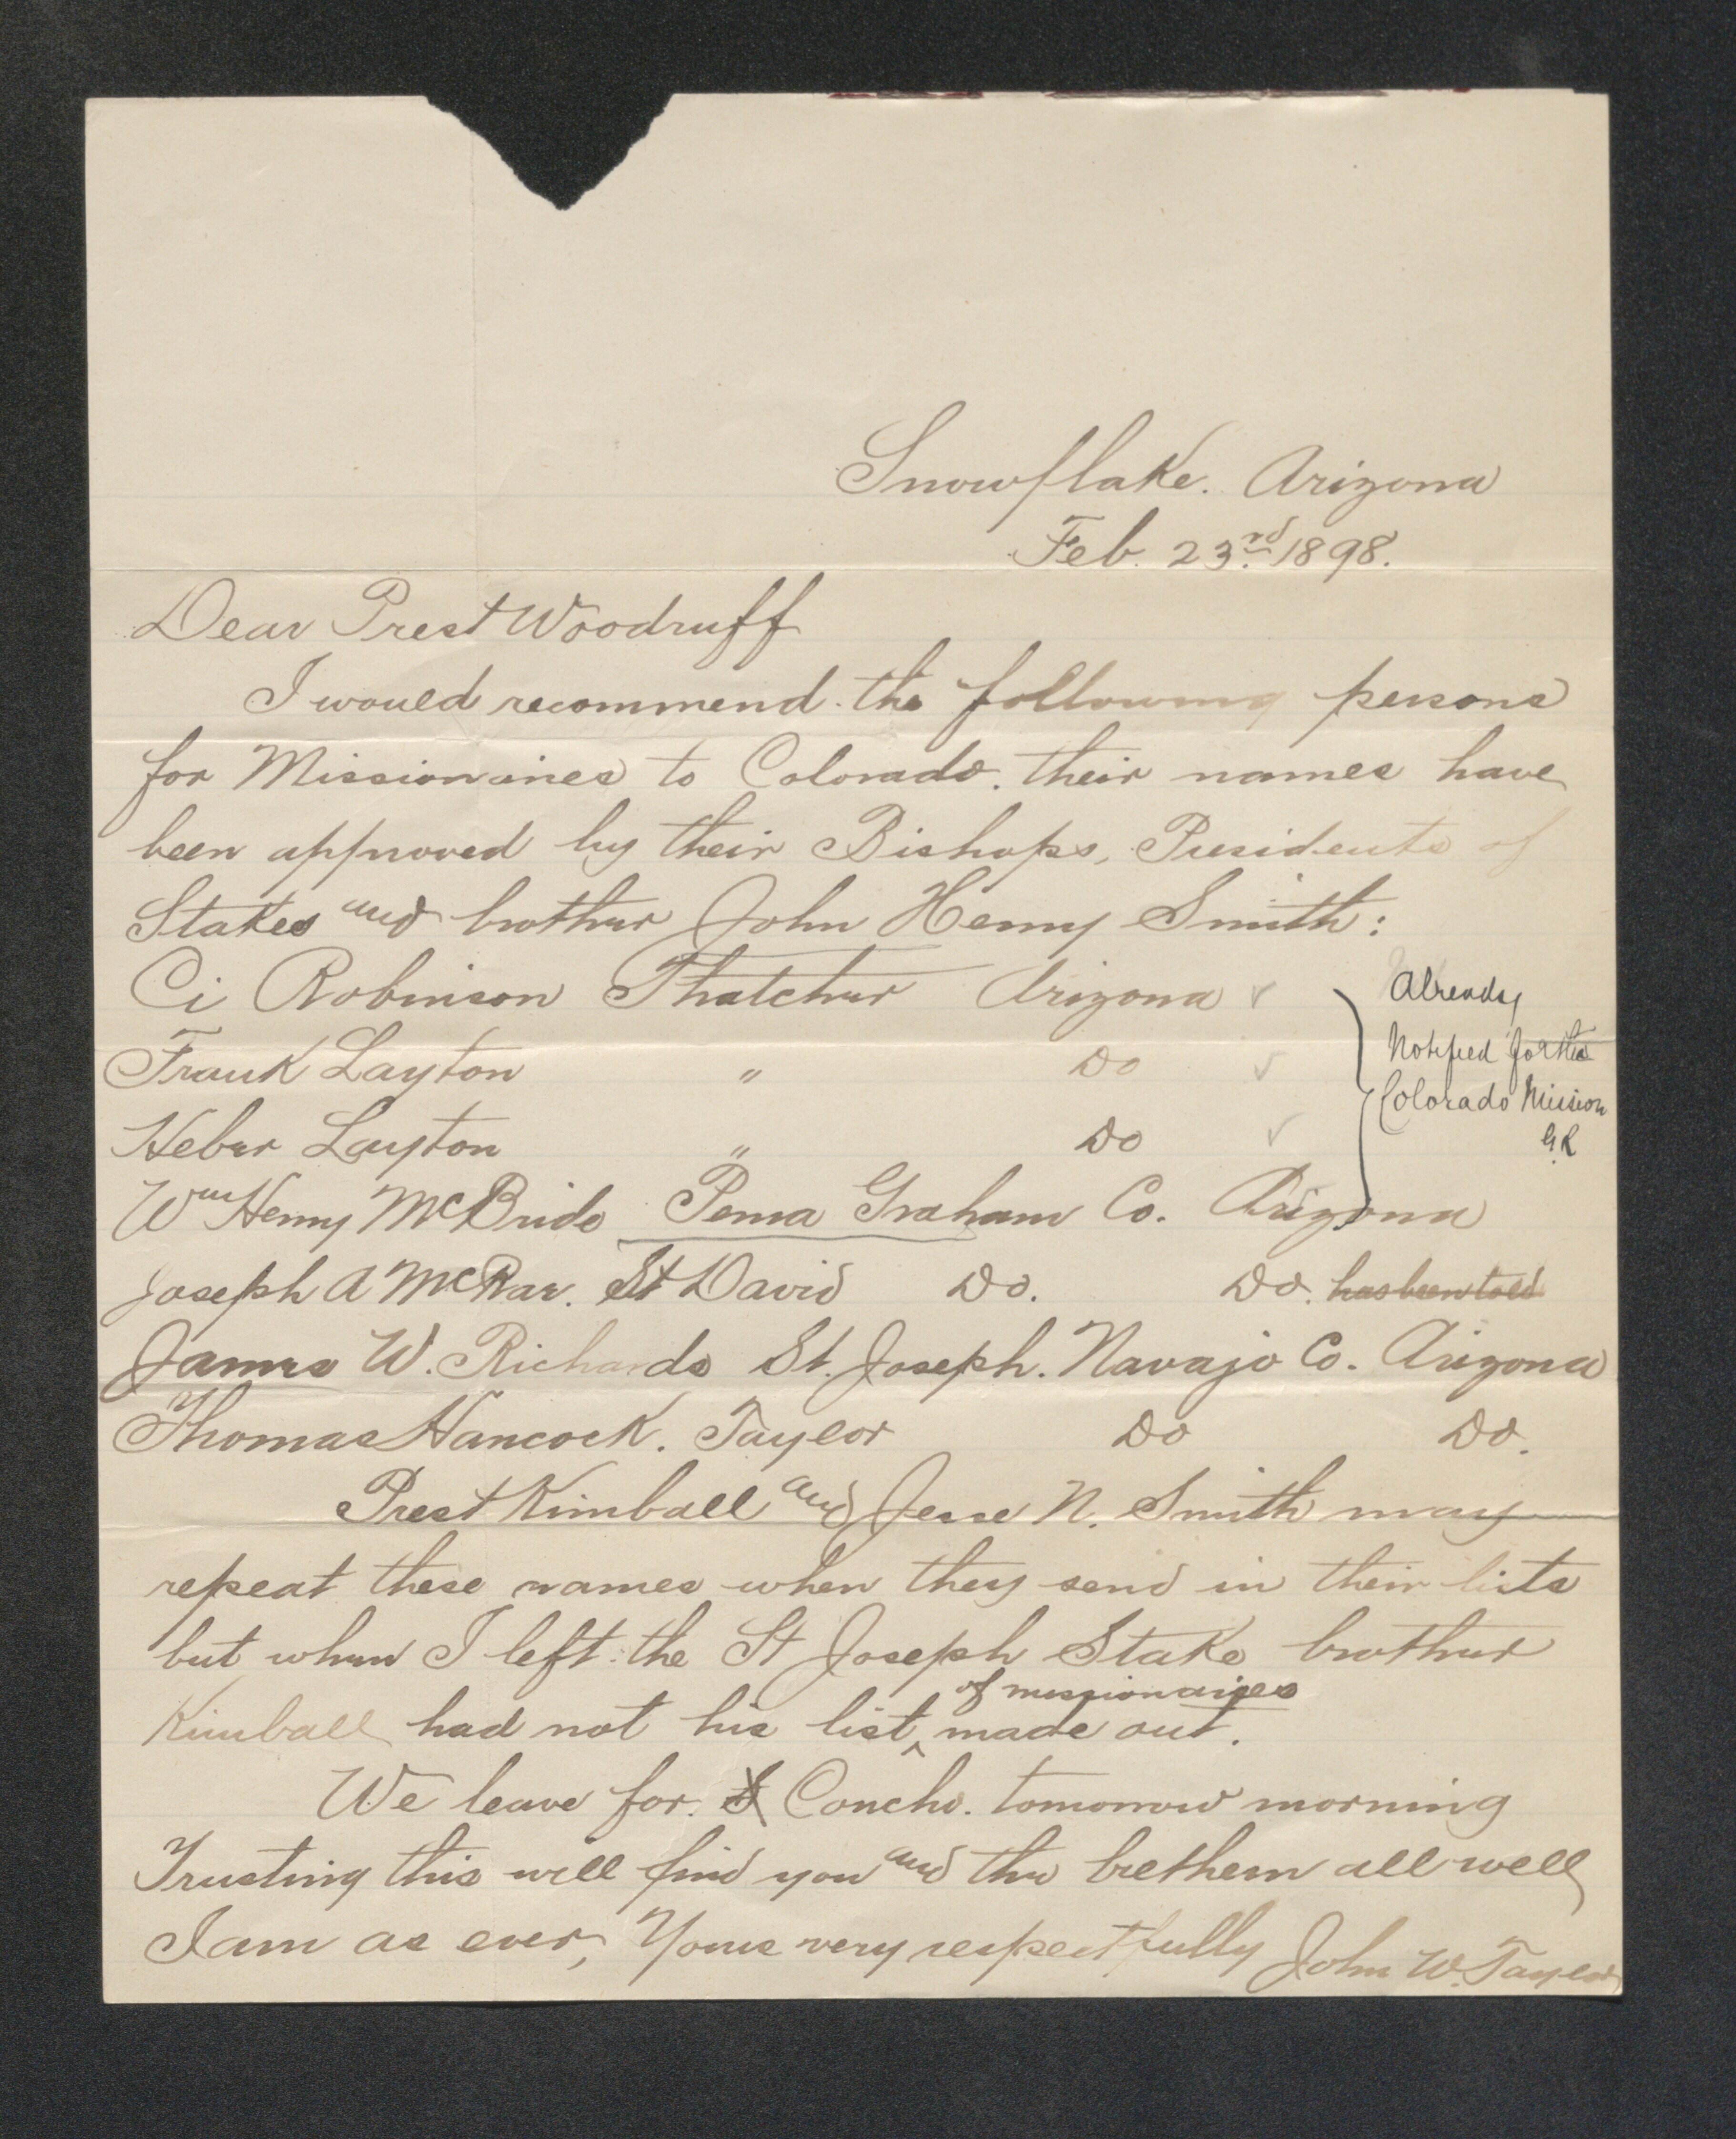 Snowflake. Arizona
Feb. 23rd 1898.
Dear Prest Woodruff
I would recommend the following persons
for Missionaries to Colorado. their names have
been approved by their Bishops, Presidents of
Stakes and brother John Henry Smith:
Ci Robinson Thatcher Arizona ✓
Frank Layton " Do ✓
Heber Layton " Do ✓
Already
Notified for the
Colorado Mission
G.R
Wm Henry McBride Pema Graham Co. Arizona
Joseph A McRae. St David Do. Do. has been told
James W. Richards St. Joseph. Navajo Co. Arizona
Thomas Hancock. Taylor Do Do.
Prest Kimball and Jesse N. Smith may
repeat these names when they send in their lists
but when I left the St Joseph Stake brother
of missionaries
Kimball had not his list ^ made out.
We leave for. S Concho. tomorrow morning
Trusting this will find you and the brethern all well
I am as ever, Yours very respectfully John W. Taylor